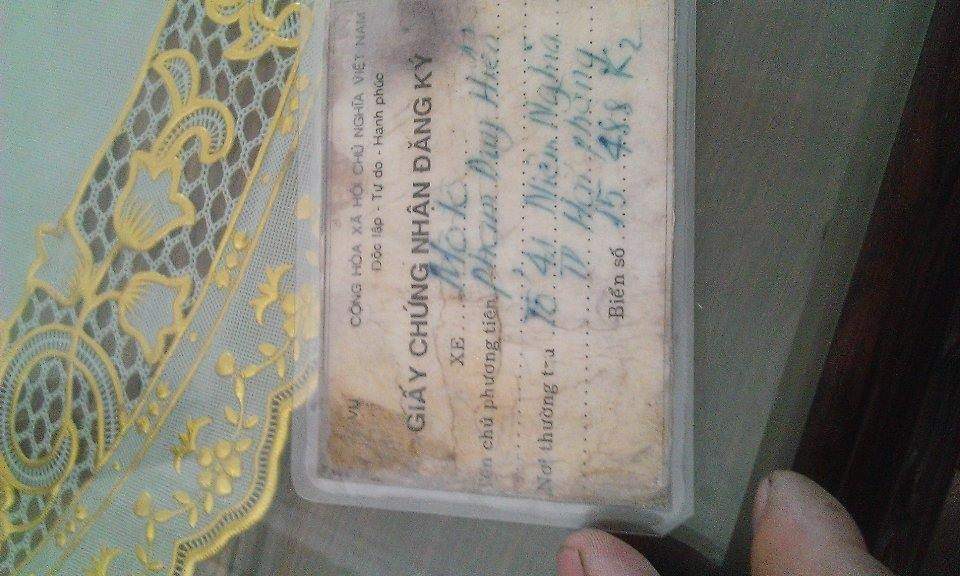 VỤ
CỘNG HÒA XÃ HỘI CHỦ NGHĨA VIỆT NAM
Độc lập - Tự do - Hạnh phúc
GIẤY CHỨNG NHẬN ĐĂNG KÝ
XE.....Mô tô
Tên chủ phương tiện Phạm Duy Hiển
Nơi thường trú Tổ 41 Niệm Nghĩa
TP Hải phòng
Biển số... 15 488
K2